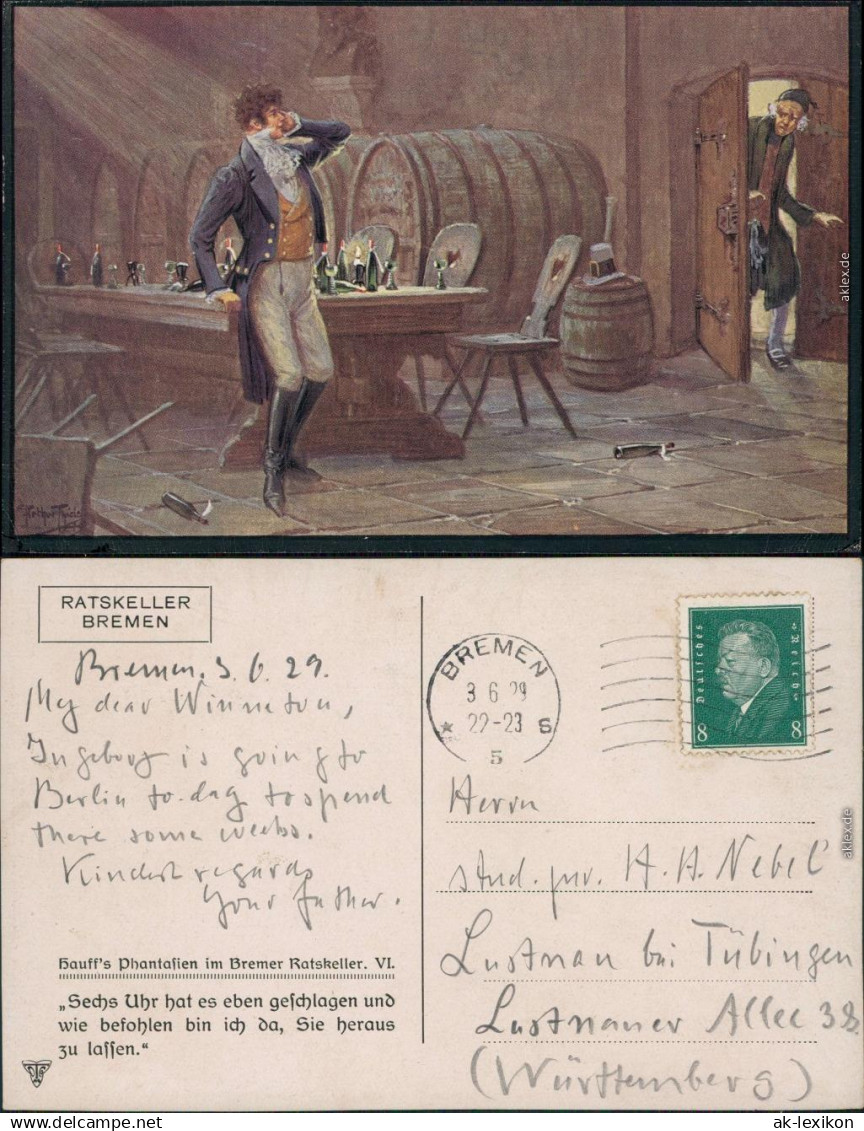 Arthur Thiele
aklex.de
RATSKELLER
BREMEN
Bremen, 3. 6. 29.
My dear Winnetou,
Ingeborg is going to
Berlin to-day to spend
there some weeks.
Kindest regards
Your father.
Hauff's Phantasien im Bremer Ratskeller. VI.
„Sechs Uhr hat es eben geschlagen und
wie befohlen bin ich da, Sie heraus
zu lassen.“
BREMEN
3 6 29
* 22-23 S
5
Deutsches Reich
8 8
Herrn
stud. jur. H. H. Nebel
Lustnau bei Tübingen
Lustnauer Allee 38
(Württemberg)
aklex.de
ak-lexikon